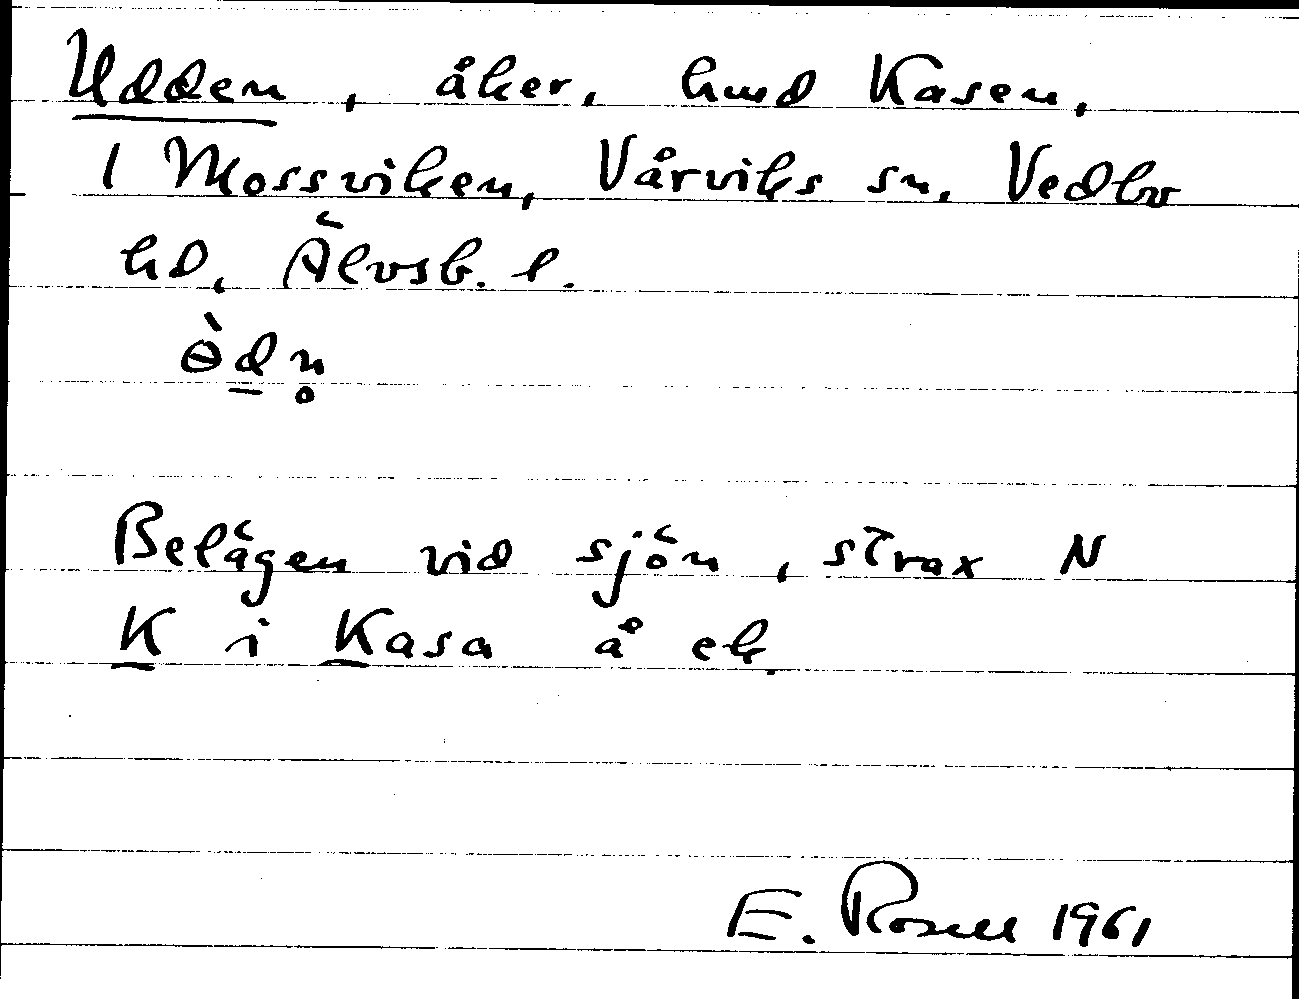 Udden, åker, hmd Kasen,
1 Mossviken, Vårviks sn, Vedbo
hd, Älvsb. l.
ɵ̀dn̥
Belägen vid sjön, strax N
K i Kasa å ek.
E. Rosell 1961